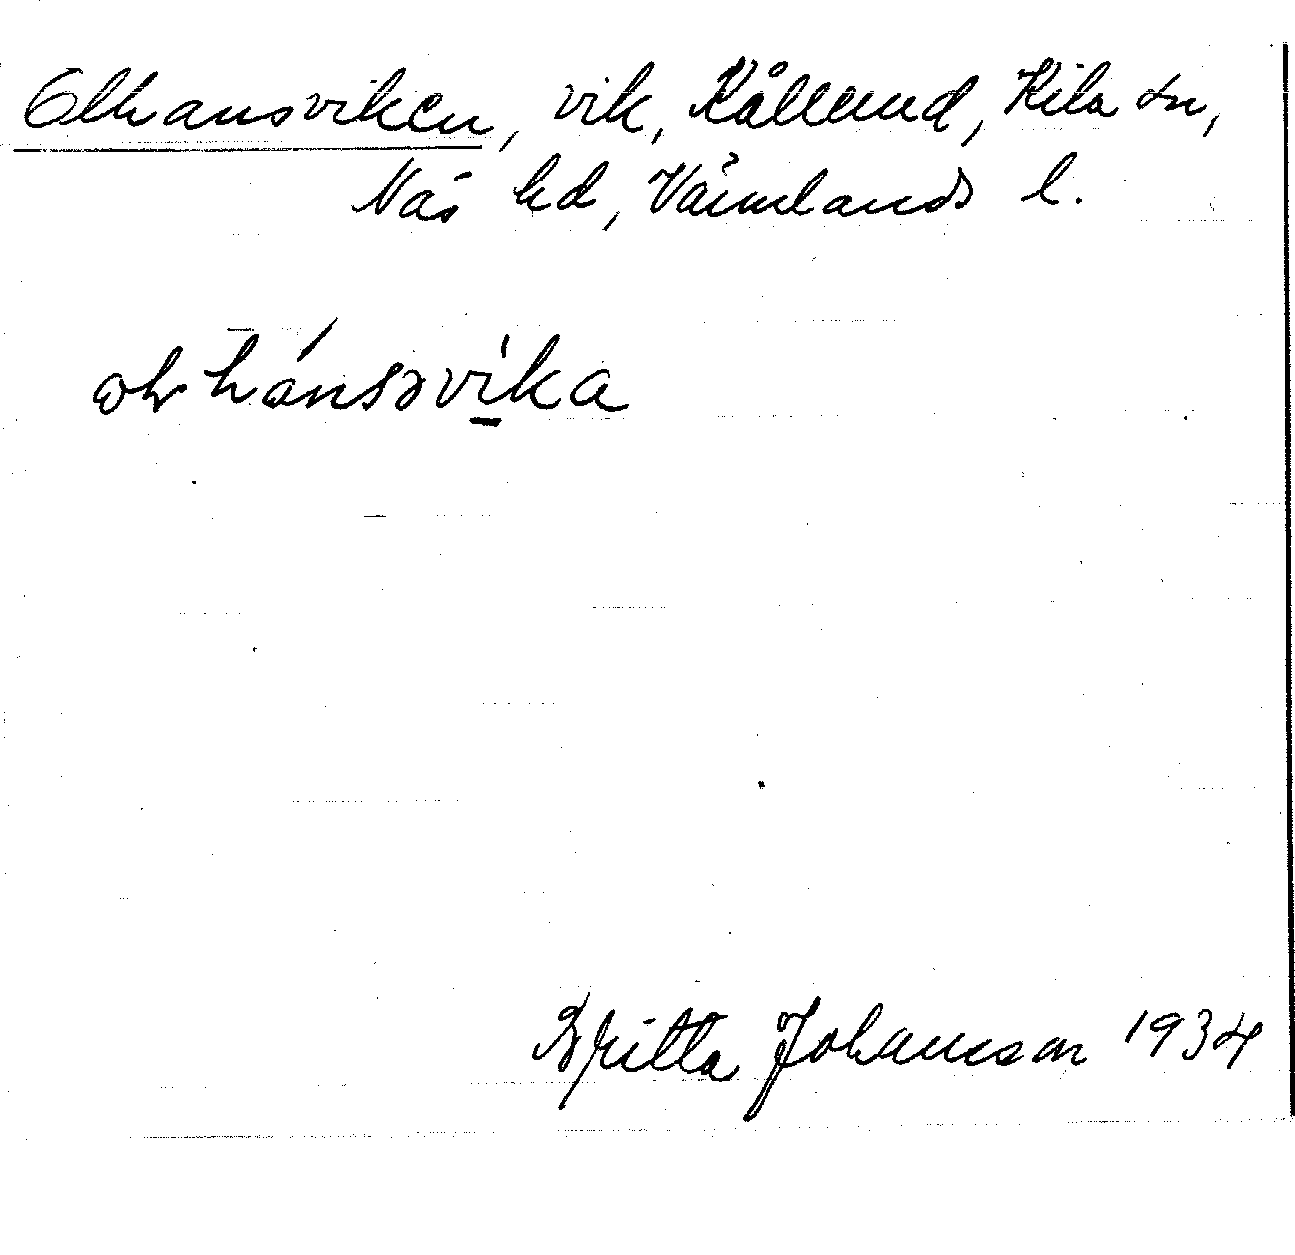 Olhansviken, vik, Kållerud, Kila sn,
Näs hd, Värmlands l.
Britta Johansson 1934